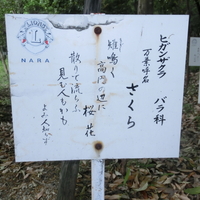 ヒガンザクラ バラ科
万葉呼名
さくら
雉鳴く
高円の辺に
桜花
散りて流らふ
見む人もがも
よみ人知らず
L
NARA